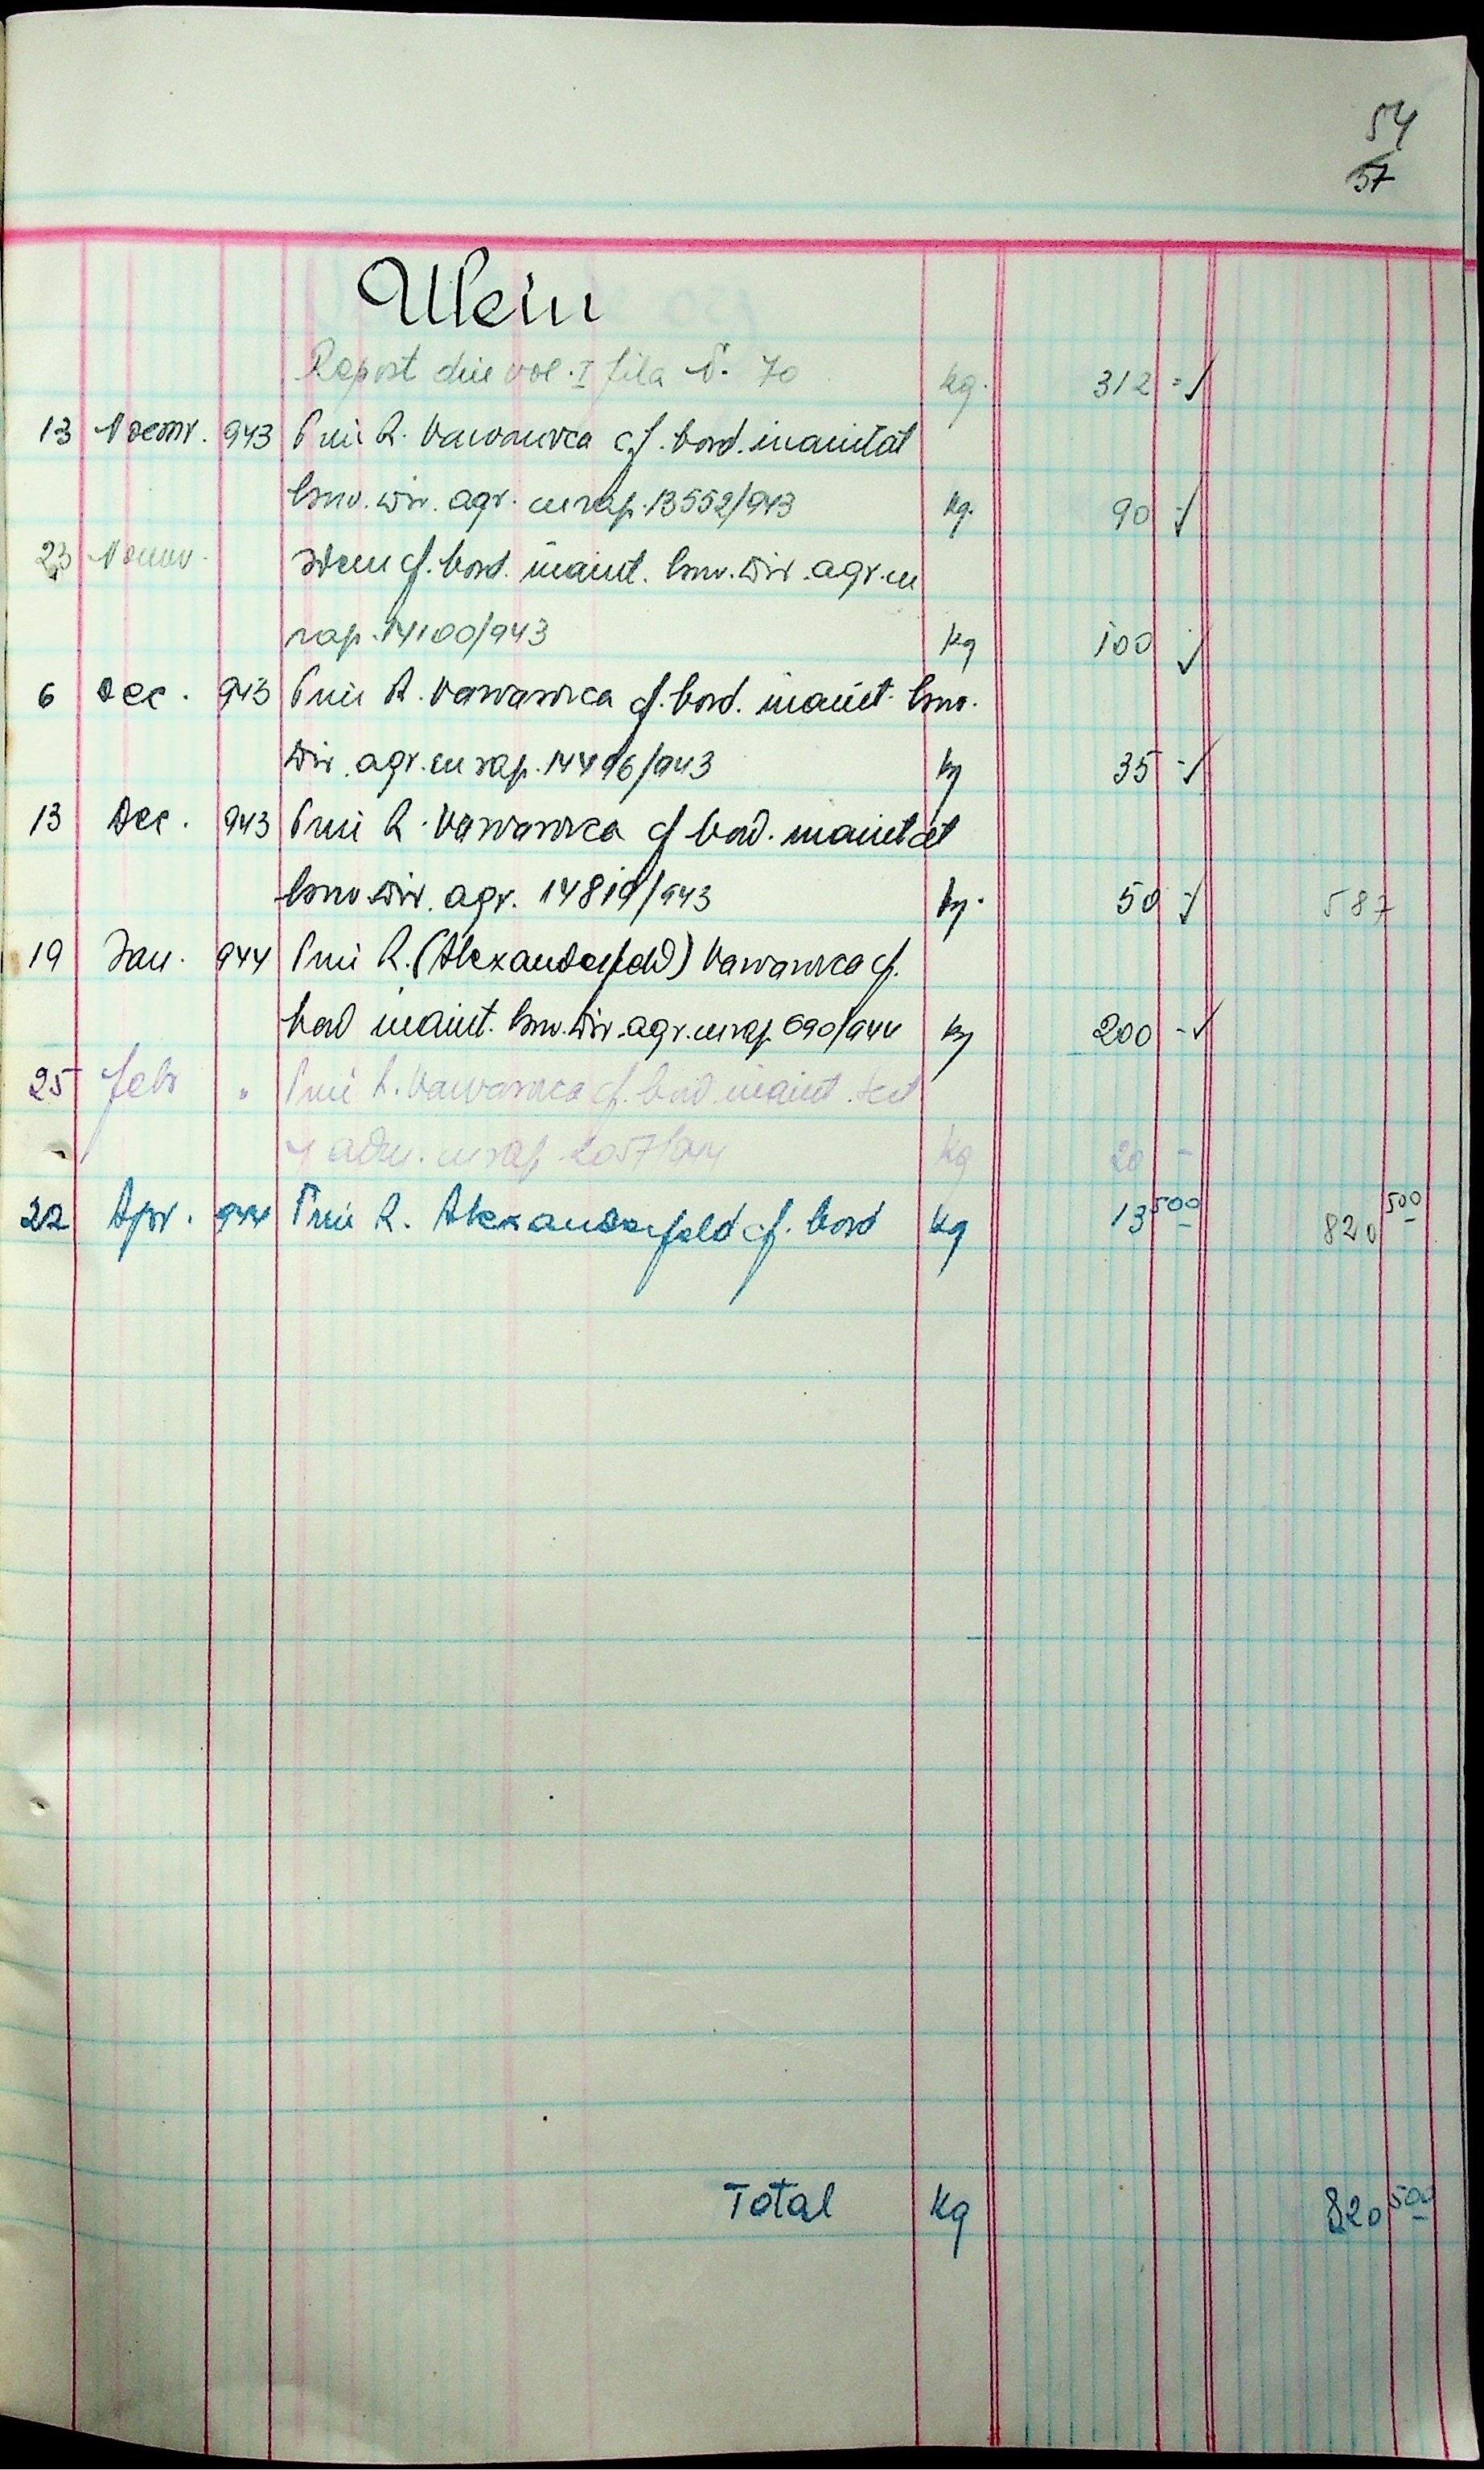 54
57
Report din vol. I fila N. 70 kg. 312 =
13 Noemr. 943 Prin R. Varvarovca cf. bord. inaintat
Conv. Dir. agr. cu rap. 13552/943 kg. 90 -
23 Noemv. Idem cf. bord. inaint. Conv. Dir. agr. cu
rap. 14100/943 kg 100 -
6 Dec. 943 Prin R. Varvarovca cf. bord. inaint. Conv.
Dir. agr. cu rap. 14496/943 kg 35 -
13 Dec. 943 Prin R. Varvarovca cf bord. inaintat
Conv. Dir. agr. 14819/943 kg. 50 - 587
19 Jan. 944 Prin R. (Alexanderfeld) Varvarovca cf.
bord inaint. Conv. Dir. agr. cu rap. 690/944 kg 200 -
25 Febr " Prin R. Varvarovca cf. bord. inaint.
adm. cu rap. 2057/944 kg 20 -
22 Apr. 944 Prin R. Alexanderfeld cf. bord kg 13 500 820 500
Total kg 820 500